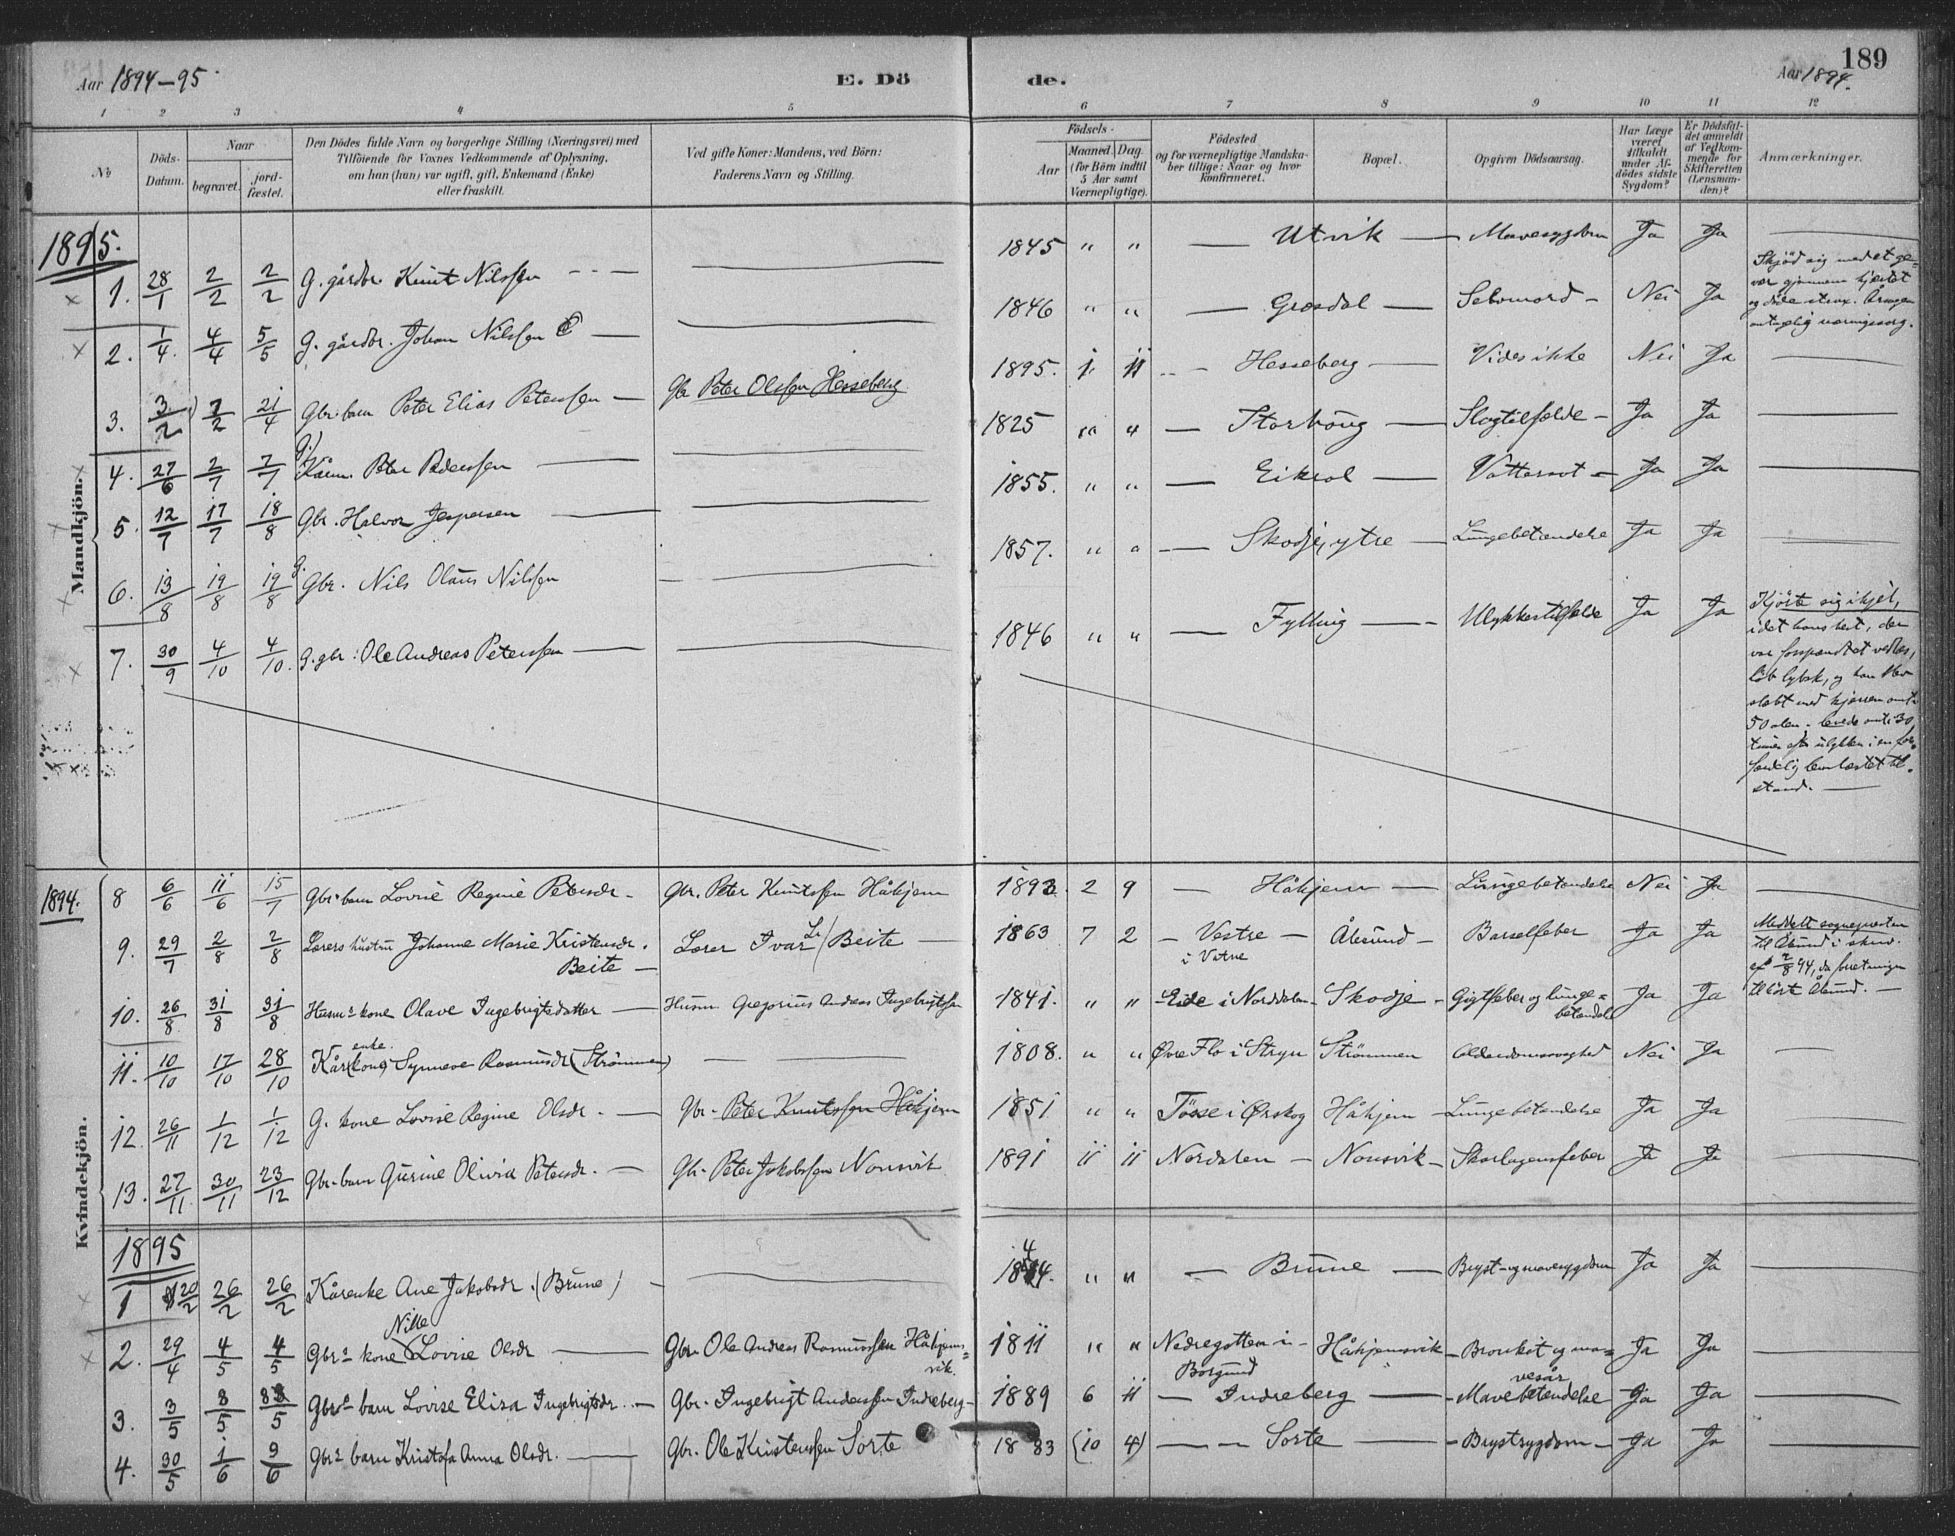 189
Aar 1894-95.
E. Dö
de.
Aar 1894.
1 2 3 4 5 6 7 8 9 10 11 12
No
Döds-Datum.
Naar
begravet.
jord-fæstet.
Den Dödes fulde Navn og borgerlige Stilling (Næringsvei) med
Tilföiende for Voxnes Vedkommende af Oplysning,
om han (hun) var ugift, gift, Enkemand (Enke)
eller fraskilt.
Ved gifte Koner: Mandens, ved Börn:
Faderens Navn og Stilling.
Födsels-
Aar
Maaned. Dag.
(for Börn indtil
5 Aar samt
Værnepligtige).
Födested
og for værnepligtige Mandska-
ber tillige: Naar og hvor
konfirmeret.
Bopæl.
Opgiven Dödsaarsag.
Har Læge
været
tilkaldt
under Af-
dödes sidste
Sygdom?
Er Dödsfal-
det anmeldt
af Vedkom-
mende for
Skifteretten
(Lensman-
den)?
Anmærkninger.
Mandkjön.
1895.
1. 28/1 2/2 2/2 G. gårdbr. Knut Nilssen 1845 " " Utvik Mavesygdom Ja Ja
2. 1/4. 4/4 5/5 G. gårdbr. Johan Nilssen 1846 " " Grosdal Selvmord Nei Ja
Skjöd sig med et ge-
vær gjennem hjertet
og döde strax. Årsagen
antagelig næringssorg.
3. 3/2 7/2 21/4 Gbr. barn Peter Elias Peterssen Gbr. Peter Olssen Hesseberg 1895. 1. 11 Hesseberg Vides ikke Nei Ja
4. 27/6 2/7 7/7 G. Kårm. Peter Pederssen 1825 " " Storhoug Slagtilfælde Ja Ja
5. 12/7 17/7 18/8 Gbr. Halvor Jespersen 1855. " " Eikrol Vattersot Ja Ja
6. 13/8 19/8 19/8 g. Gbr. Nils Olaus Nilssen 1857. " " Skodje, ytre Lungebetændelse Ja Ja
7. 30/9 4/10 4/10. G. gbr: Ole Andreas Peterssen 1846 " " Fylling Ulykkestilfælde Ja Ja
Kjörte sig ihjel,
idet hans hest, der
var forspændt et vedlæs,
löb lybsk, og han blev
slæbt med kjærren omtr.
50 alen. levede omtr. 30
timer efter ulykken i en for-
færdelig lemlæstet til-
stand.
Kvindekjön.
1894.
8 6/6 11/6 15/7 Gbr. barn Lovise Regine Petersdr. Gbr. Peter Knutssen Håhjem 1893. 2 9 Håhjem Lungebetændelse Nei Ja
9. 29/7 2/8 2/8 Lærers hustru Johanne Marie Kristensdr. Beite Lærer Ivar Beite 1863 7 2 Vestre i Vatne Ålesund Barselfeber Ja Ja
Meddelt sognepresten
til Ålesund i skriv.
af 2/8 94, da forretningen
tilhört Ålesund.
10. 26/8 31/8 31/8 Husm kone Olave Ingebrigtsdatter Husm Gregorius Andreas Ingebrigtssen 1841. " " Eide i Norddalen Skodje Gigtfeber og lunge-
betændelse Ja Ja
11. 10/10 17/10 28/10 Kår(kone) enke. Synneve Rasmusdr (Strömmen) 1808. " " Øvre Flo i Stryn Strömmen Alderdomssvaghed Nei Ja
12. 26/11 1/12 1/12 G. kone Lovise Regine Olsdr. Gbr. Peter Knutssen Håhjem 1851 " " Tösse i Ørskog Håhjem Lungebetændelse Ja Ja
13. 27/11. 30/11 23/12 Gbr. barn Gurine Olivia Petersdr. Gbr. Peter Jakobssen Nonsvik 1891 11 11 Nordalen Nonsvik Skarlagensfeber Ja Ja
1895
1 20/2 26/2 26/2 Kårenke Ane Jakobsdr. (Brune) 1844. " " Brune Bryst- og mavesygdom Ja Ja
2. 29/4 4/5 4/5 Gbrs kone Nille Lovise Olsdr Gbr. Ole Andreas Rasmussen Håhjems-
vik. 1811 " " Nedregotten i Borgund Håhjemsvik Bronkit og ma-
vesår Ja Ja
3. 3/5 8/5 8/5 Gbrs barn Lovise Elisa Ingebrigtsdr. Gbr. Ingebrigt Anderssen Indreberg 1889 6 11 Indreberg Mavebetændelse Ja Ja
4. 30/5 1/6 9/6 Gbrs barn Kristofa Anna Olsdr. Gbr. Ole Kristenssen Sorte 1883 (10 4) Sorte Brystsygdom Ja Ja